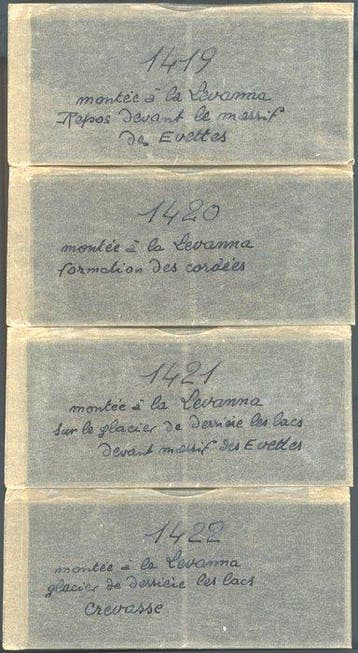 1419
montée à la Levanna
Repos devant le massif
des Evettes
1420
montée à la Levanna
formation des cordées
1421
montée à la Levanna
sur le glacier de derrière les lacs
devant massif des Evettes
1422
montée à la Levanna
glacier de derrière les lacs
crevasse